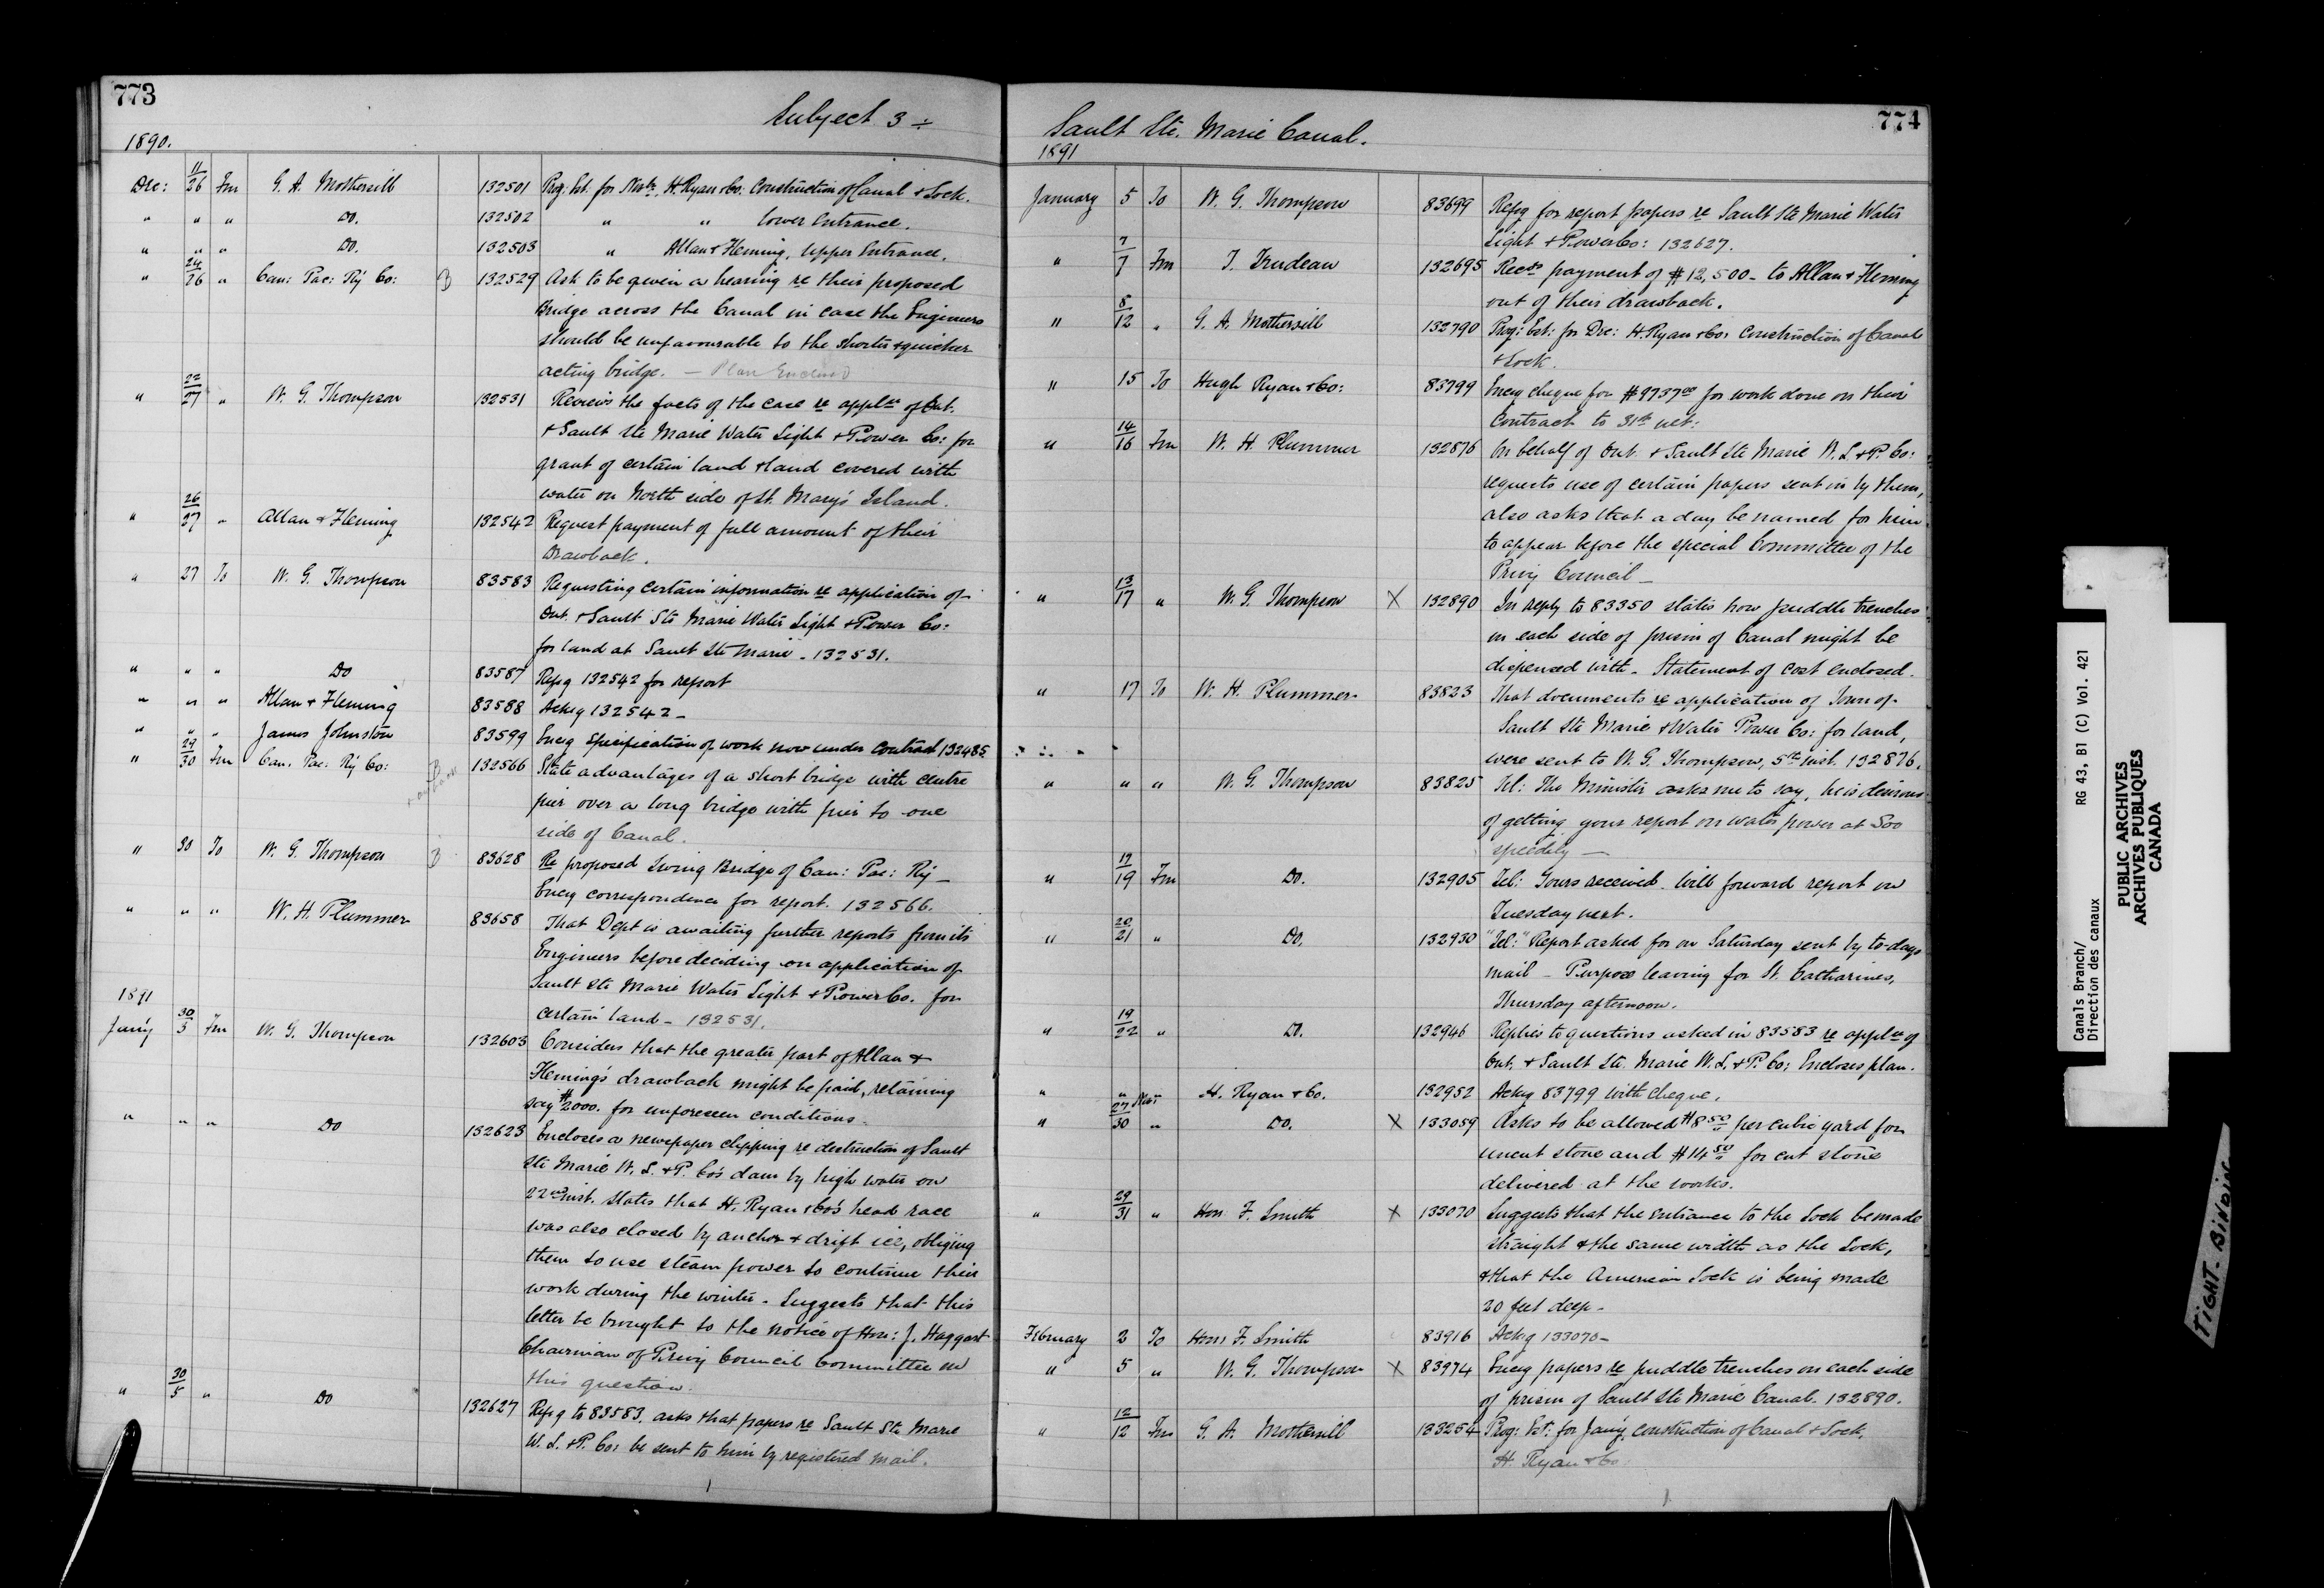 773
Subject 3 ÷
1890.
Dec: 11/26 Fm G. A. Mothersill 132501 Prog: Est: for Novbr. H. Ryan & Co: Construction of Canal & Lock.
" " " Do. 132502 " " Lower Entrance.
" " " Do. 132503 " Allan & Fleming, Upper Entrance.
" 24/26 " Can: Pac: Ry Co: B 132529 Ask to be given a hearing re their proposed
Bridge across the Canal in case the Engineers
should be unfavourable to the shorter & quicker
acting bridge. — Plan Enclosed
" 22/27 " W. G. Thompson 132531 Reviews the facts of the case re appln of Ont.
& Sault Ste Marie Water Light & Power Co: for
grant of certain land & land covered with
water on North side of St. Mary's Island.
" 26/27 " Allan & Fleming 132542 Request payment of full amount of their
Drawback.
" 27 To W. G. Thompson 83583 Requesting certain information re application of
Ont. & Sault Ste Marie Water Light & Power Co:
for land at Sault Ste Marie - 132531.
" " " Do 83587 Refg 132542 for report
" " " Allan & Fleming 83588 Ackg 132542 -
" " " James Johnston 83599 Encg Specification of work now under contract 132485
" 29/30 Fm Can. Pac: Ry Co: B 132566 State advantages of a short bridge with centre
pier over a long bridge with pier to one
side of Canal.
" 30 To W. G. Thompson B 83628 Re proposed Swing Bridge of Can: Pac: Ry —
Encg correspondence for report. 132566.
" " " W. H. Plummer 83658 That Dept is awaiting further reports from its
Engineers before deciding on application of
Sault Ste Marie Water Light & Power Co. for
certain land - 132531.
1891
Jan'y 30/3 Fm W. G. Thompson 132603 Considers that the greater part of Allan &
Fleming's drawback might be paid, retaining
say $2000. for unforeseen conditions.
" " " Do 132623 Encloses a newspaper clipping re destruction of Sault
Ste Marie W. L. & P. Co's dam by high water on
22nd inst. States that H. Ryan & Co's head race
was also closed by anchor & drift ice, obliging
them to use steam power to continue their
work during the winter. Suggests that this
letter be brought to the notice of Hon: J. Haggart
Chairman of Privy Council Committee on
this question.
" 30/5 " Do 132627 Refg to 83583. asks that papers re Sault Ste Marie
W. L. & P. Co: be sent to him by registered mail.
774
Sault Ste. Marie Canal.
1891
January 5 To W. G. Thompson 83699 Refg for report papers re Sault Ste Marie Water
Light & Power Co: 132627.
" 7/7 Fm T. Trudeau 132695 Recds payment of $12,500 - to Allan & Fleming
out of their drawback.
" 8/12 " G. A. Mothersill 132790 Prog: Est: for Dec: H. Ryan & Co: Construction of Canal
& Lock.
" 15 To Hugh Ryan & Co: 83799 Encg cheque for $9737.00 for work done on their
Contract to 31st ult:
" 14/16 Fm W. H. Plummer 132876 On behalf of Ont. & Sault Ste Marie W. L. & P. Co:
requests use of certain papers sent in by them,
also asks that a day be named for him
to appear before the special Committee of the
Privy Council —
" 13/17 " W. G. Thompson X 132890 In reply to 83350 states how puddle trenches
in each side of prism of Canal might be
dispensed with. Statement of cost enclosed.
" 17 To W. H. Plummer 83823 That documents re application of Town of
Sault Ste Marie & Water Power Co: for land,
were sent to W. G. Thompson, 5th inst. 132876.
" " " W. G. Thompson 83825 Tel: The Minister asks me to say, he is desirous
of getting your report on water power at Soo
speedily —
" 17/19 Fm Do. 132905 Tel: Yours received. Will forward report on
Tuesday next.
" 20/21 " Do. 132930 "Tel:" Report asked for on Saturday sent by to-days
mail - Purpose leaving for St. Catharines,
Thursday afternoon.
" 19/22 " Do. 132946 Replies to questions asked in 83583 re appln of
Ont. & Sault Ste. Marie W. L. & P. Co: Encloses plan.
" " " H. Ryan & Co. 132952 Ackg 83799 with cheque.
" 27 Nov/30 " Do. X 133059 Asks to be allowed $8.50 per cubic yard for
uncut stone and $14.50 for cut stone
delivered at the works.
" 29/31 " Hon. F. Smith X 133070 Suggests that the entrance to the Lock be made
straight & the same width as the Lock,
& that the American Lock is being made
20 feet deep -
February 2 To Hon: F. Smith 83916 Ackg 133070 -
" 5 " W. G. Thompson X 83974 Encg papers re puddle trenches on each side
of prism of Sault Ste Marie Canal. 132890.
" 12/12 Fm G. A. Mothersill 133254 Prog: Est: for Jan'y, Construction of Canal & Lock,
H. Ryan & Co:
Canals Branch/
Direction des canaux
RG 43, B1 (C) Vol. 421
PUBLIC ARCHIVES
ARCHIVES PUBLIQUES
CANADA
TIGHT BINDING